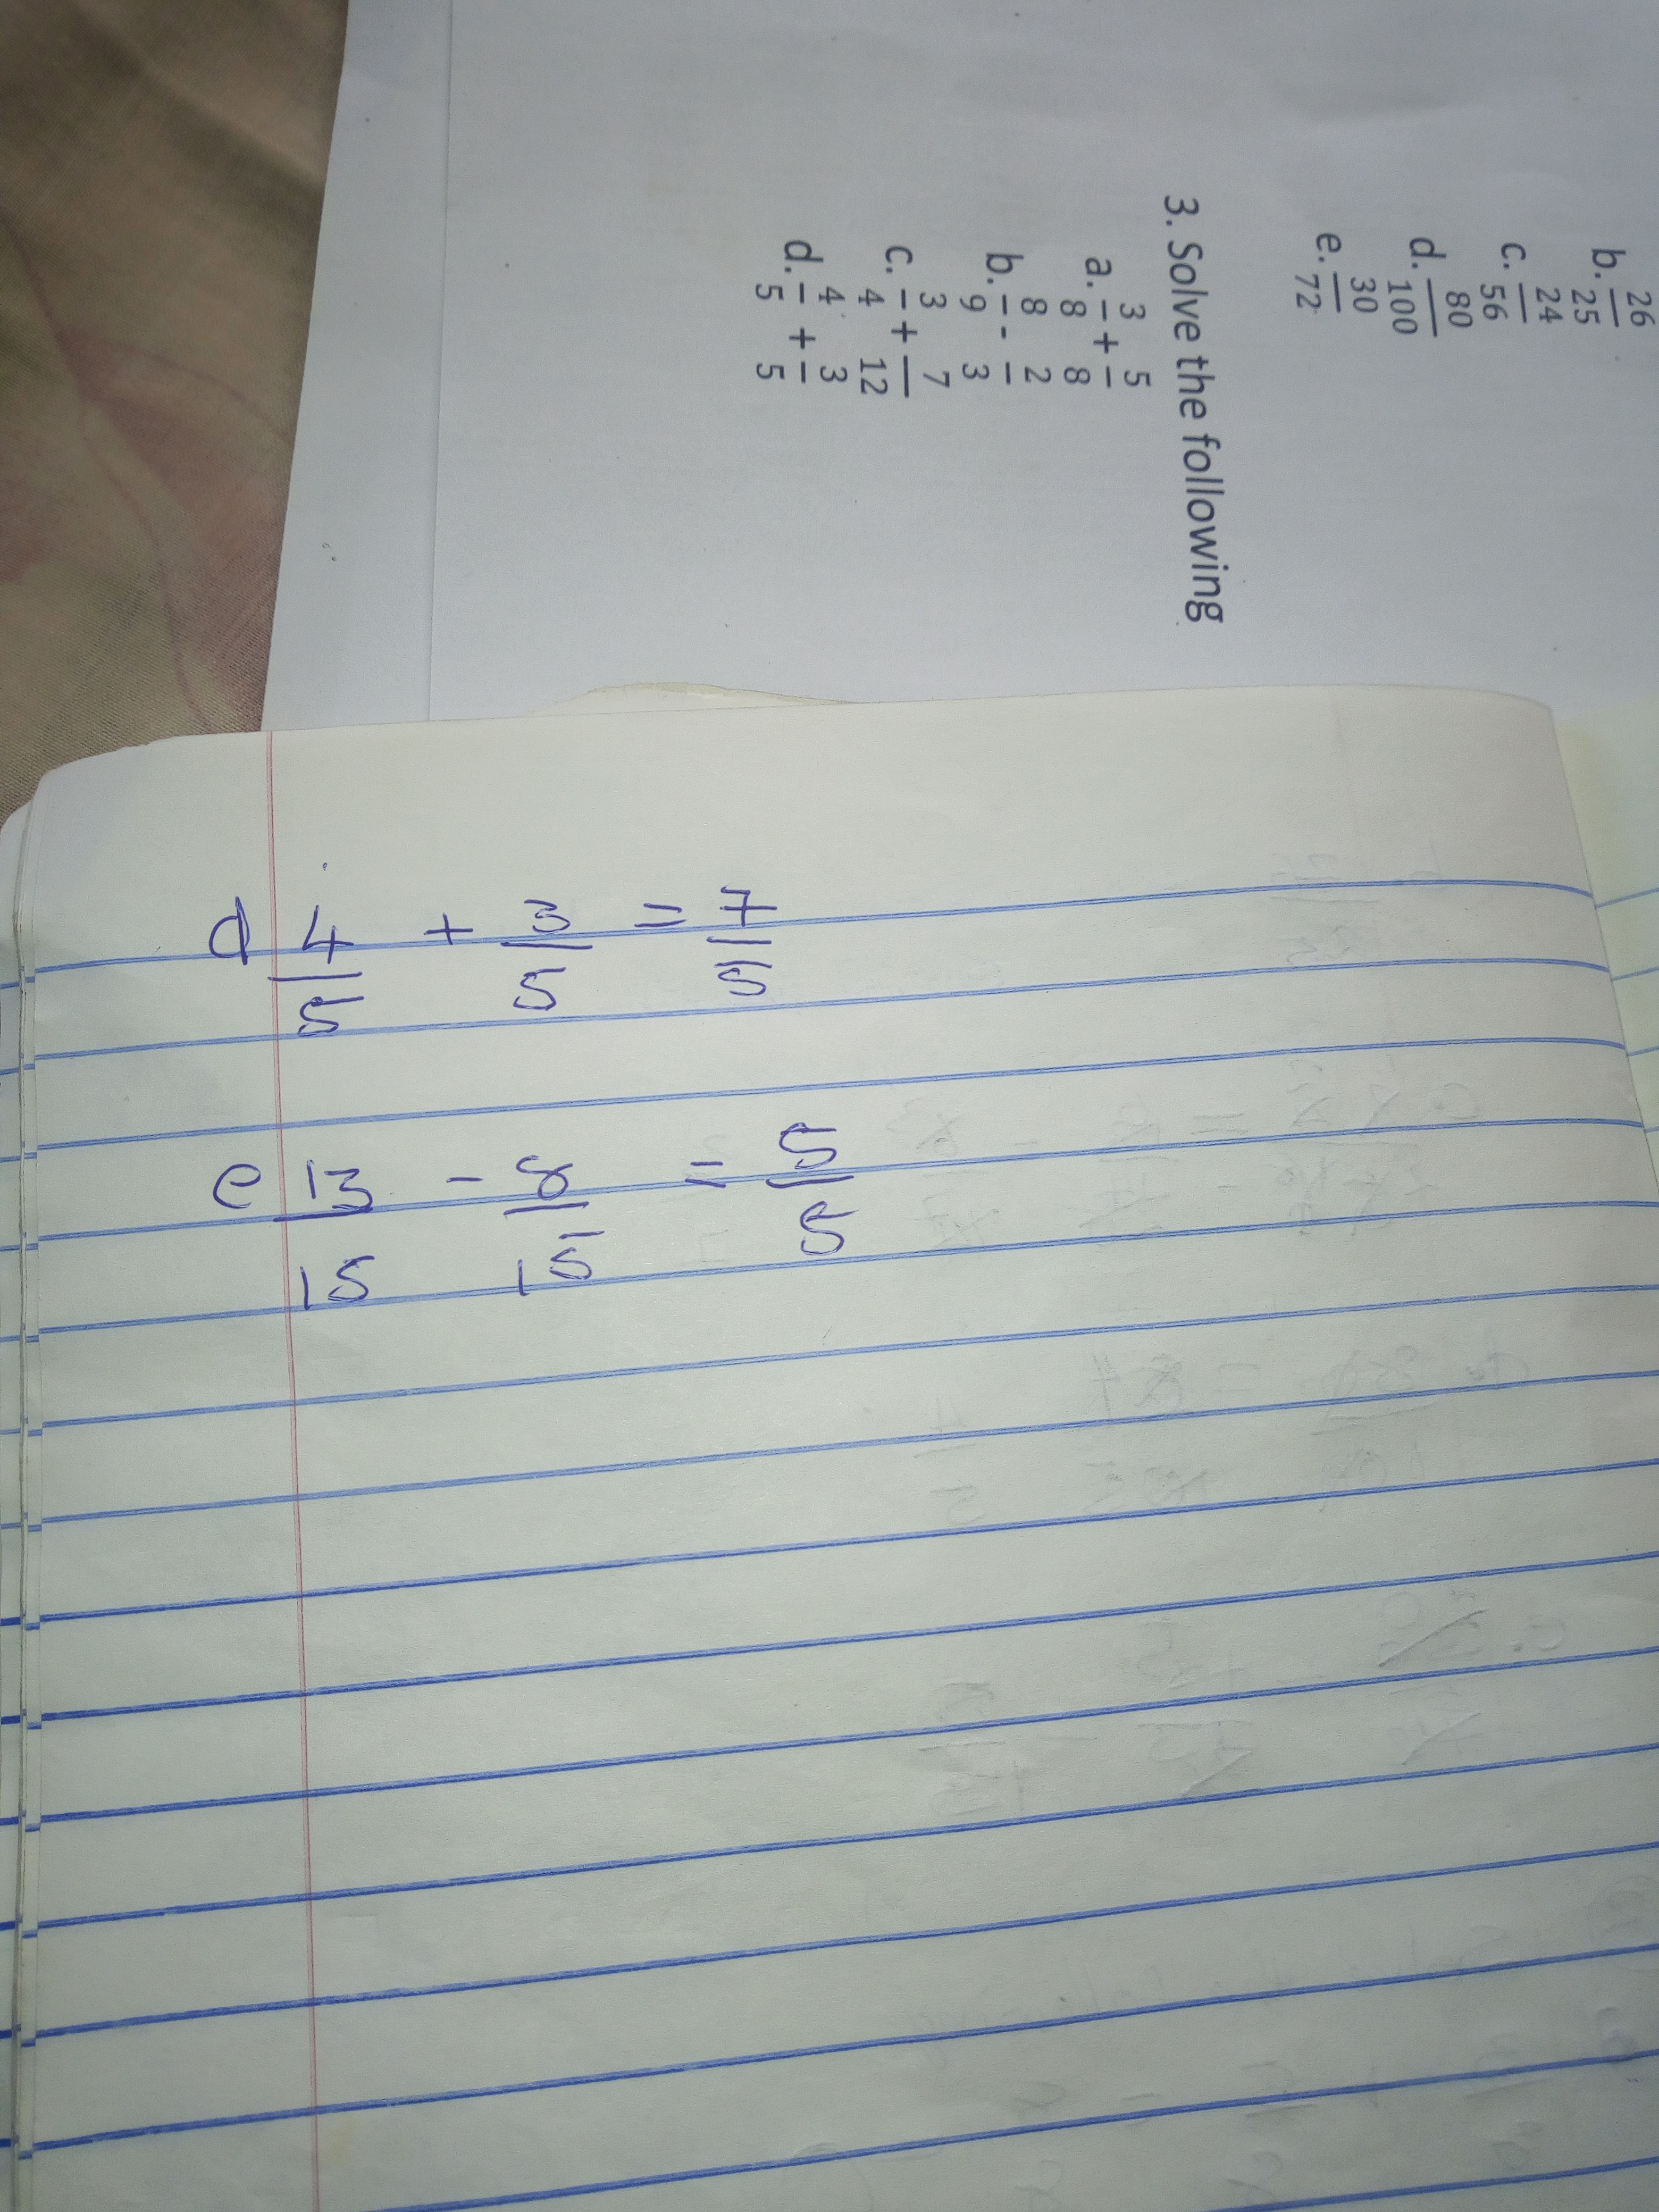 b. 26/25
c. 24/56
d. 80/100
e. 30/72
3. Solve the following
a. 3/8 + 5/8
b. 8/9 - 2/3
c. 3/4 + 7/12
d. 4/5 + 3/5
d 4/5 + 3/5 = 7/5
e 13/15 - 8/15 = 5/5